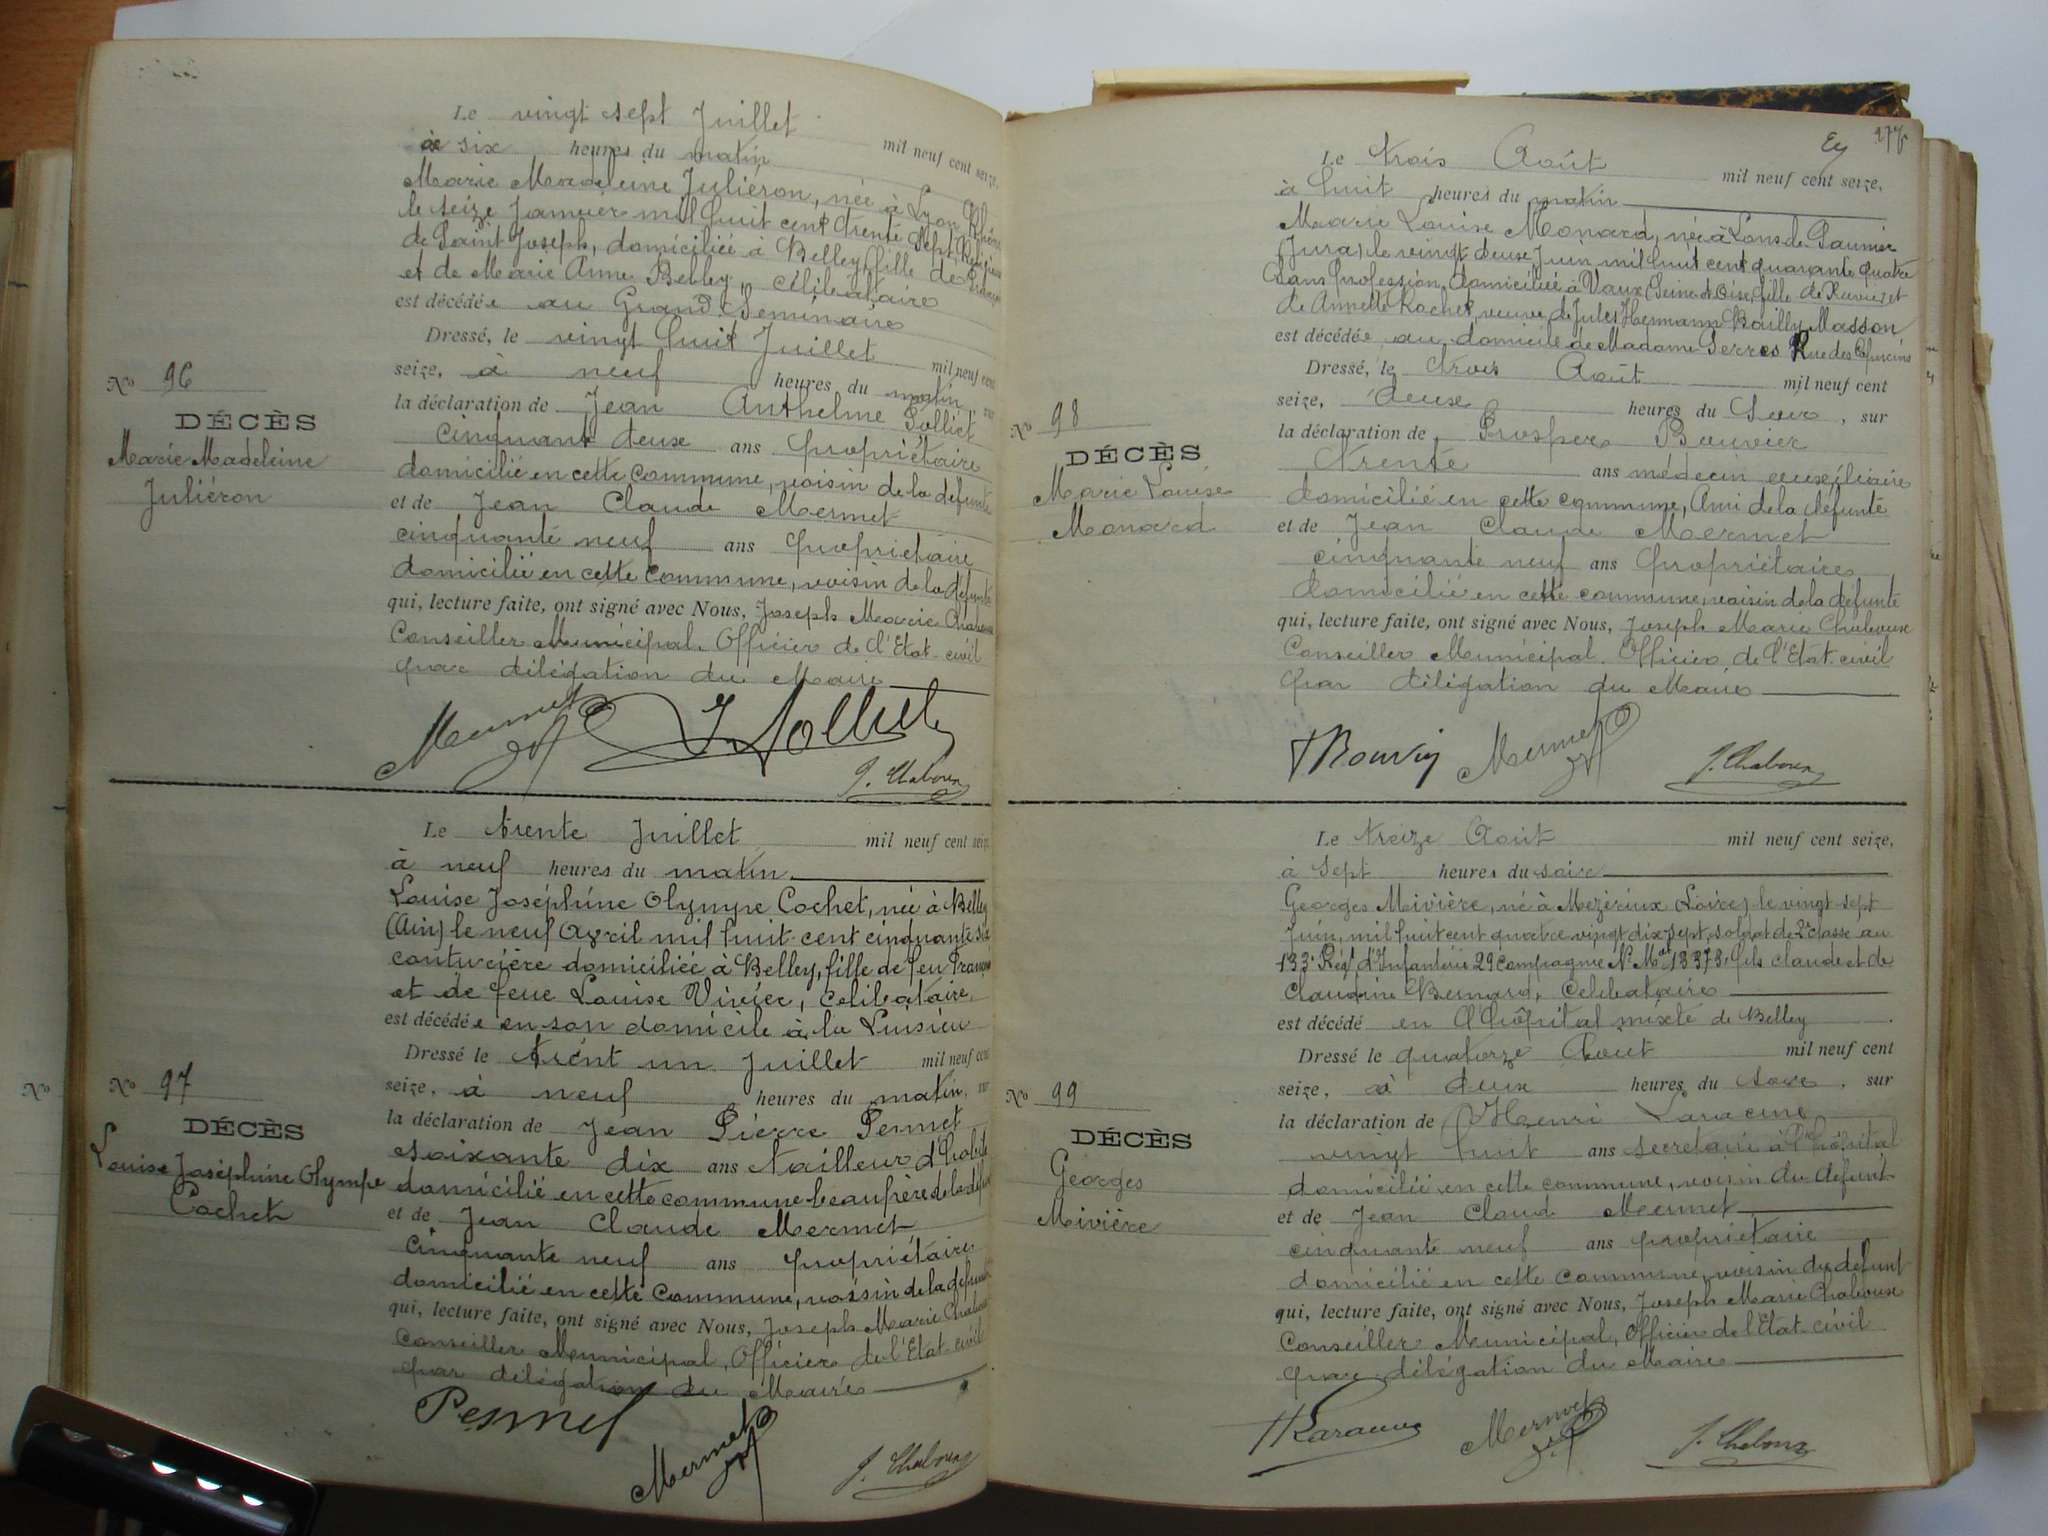 Le vingt sept Juillet mil neuf cent seize,
à six heures du matin
Marie Madeleine Juliéron, née à Lyon
le seize Janvier mil huit cent trente sept,
de Saint Joseph, domiciliée à Belley, fille de
et de Marie Anne Belley, célibataire
est décédée au Grand Seminaire
Dressé, le vingt huit Juillet mil neuf cent
seize, à neuf heures du matin
la déclaration de Jean Anthelme Jolliet
cinquante deux ans propriétaire
domicilié en cette commune, voisin de la défunte
et de Jean Claude Mermet
cinquante neuf ans propriétaire
domicilié en cette commune, voisin de la défunte
qui, lecture faite, ont signé avec Nous, Joseph Marie
Conseiller Municipal, Officier de l'Etat civil
par délégation du Maire
No 96
DÉCÈS
Marie Madeleine
Juliéron
Mermet
J. Chaboux
Le trente Juillet mil neuf cent seize
à neuf heures du matin
Louise Joséphine Olympe Cochet, née à Belley
(Ain) le neuf Avril mil huit cent cinquante six
couturière domiciliée à Belley, fille de feu
et de feue Louise Vivier, célibataire,
est décédée en son domicile à la
Dressé le trent un Juillet mil neuf cent
seize, à neuf heures du matin,
la déclaration de Jean Pierre Pernet
soixante dix ans tailleur d'habits
domicilié en cette commune beaufrère de la
et de Jean Claude Mermet
cinquante neuf ans propriétaire
domicilié en cette commune, voisin de la défunte
qui, lecture faite, ont signé avec Nous, Joseph Marie
Conseiller Municipal, Officier de l'Etat civil
par délégation du Maire
No
No 97
DÉCÈS
Louise Joséphine Olympe
Cochet
Mermet
J. Chaboux
Le trois Août mil neuf cent seize,
à huit heures du matin
Marie Louise Monard, née à Lons de Saunier
(Jura) le vingt deux Juin mil huit cent quarante quatre
sans profession, domiciliée à Vaux (Seine et Oise, fille de
de Annette Rochet, veuve de Jules Hermann Bailly Masson
est décédée au domicile de Madame Serres Rue des Capucins
Dressé, le trois Août mil neuf cent
seize, deux heures du Soir, sur
la déclaration de Prosper Bouvier
trente ans médecin auxiliaire
domicilié en cette commune, Ami de la défunte
et de Jean Claude Mermet
cinquante neuf ans propriétaire
domicilié en cette commune, voisin de la défunte
qui, lecture faite, ont signé avec Nous, Joseph Marie Chaboux
Conseiller Municipal. Officier de l'Etat civil
par délégation du Maire
No 98
DÉCÈS
Marie Louise
Monard
Mermet
J. Chaboux
Le treize Août mil neuf cent seize,
à sept heures du soir
Georges Mivière, né à Mezérieux (Loire) le vingt sept
Juin, mil huit cent quatre vingt dix sept, soldat de 2e classe au
133e Régt d'Infanterie 29 Compagnie No Mat 13373, fils claude et de
Claudine Bernard, Celibataire
est décédé en l'hôpital mixte de Belley
Dressé le quatorze Août mil neuf cent
seize, à deux heures du soir, sur
la déclaration de Henri Laracine
vingt huit ans secretaire à l'hôpital
domicilié en cette commune, voisin du défunt
et de Jean Claud Mermet
cinquante neuf ans propriétaire
domicilié en cette commune, voisin du défunt
qui, lecture faite, ont signé avec Nous, Joseph Marie Chaboux
Conseiller Municipal, Officier de l'Etat civil
par délégation du Maire
No 99
DÉCÈS
Georges
Mivière
Mermet
J. Chaboux